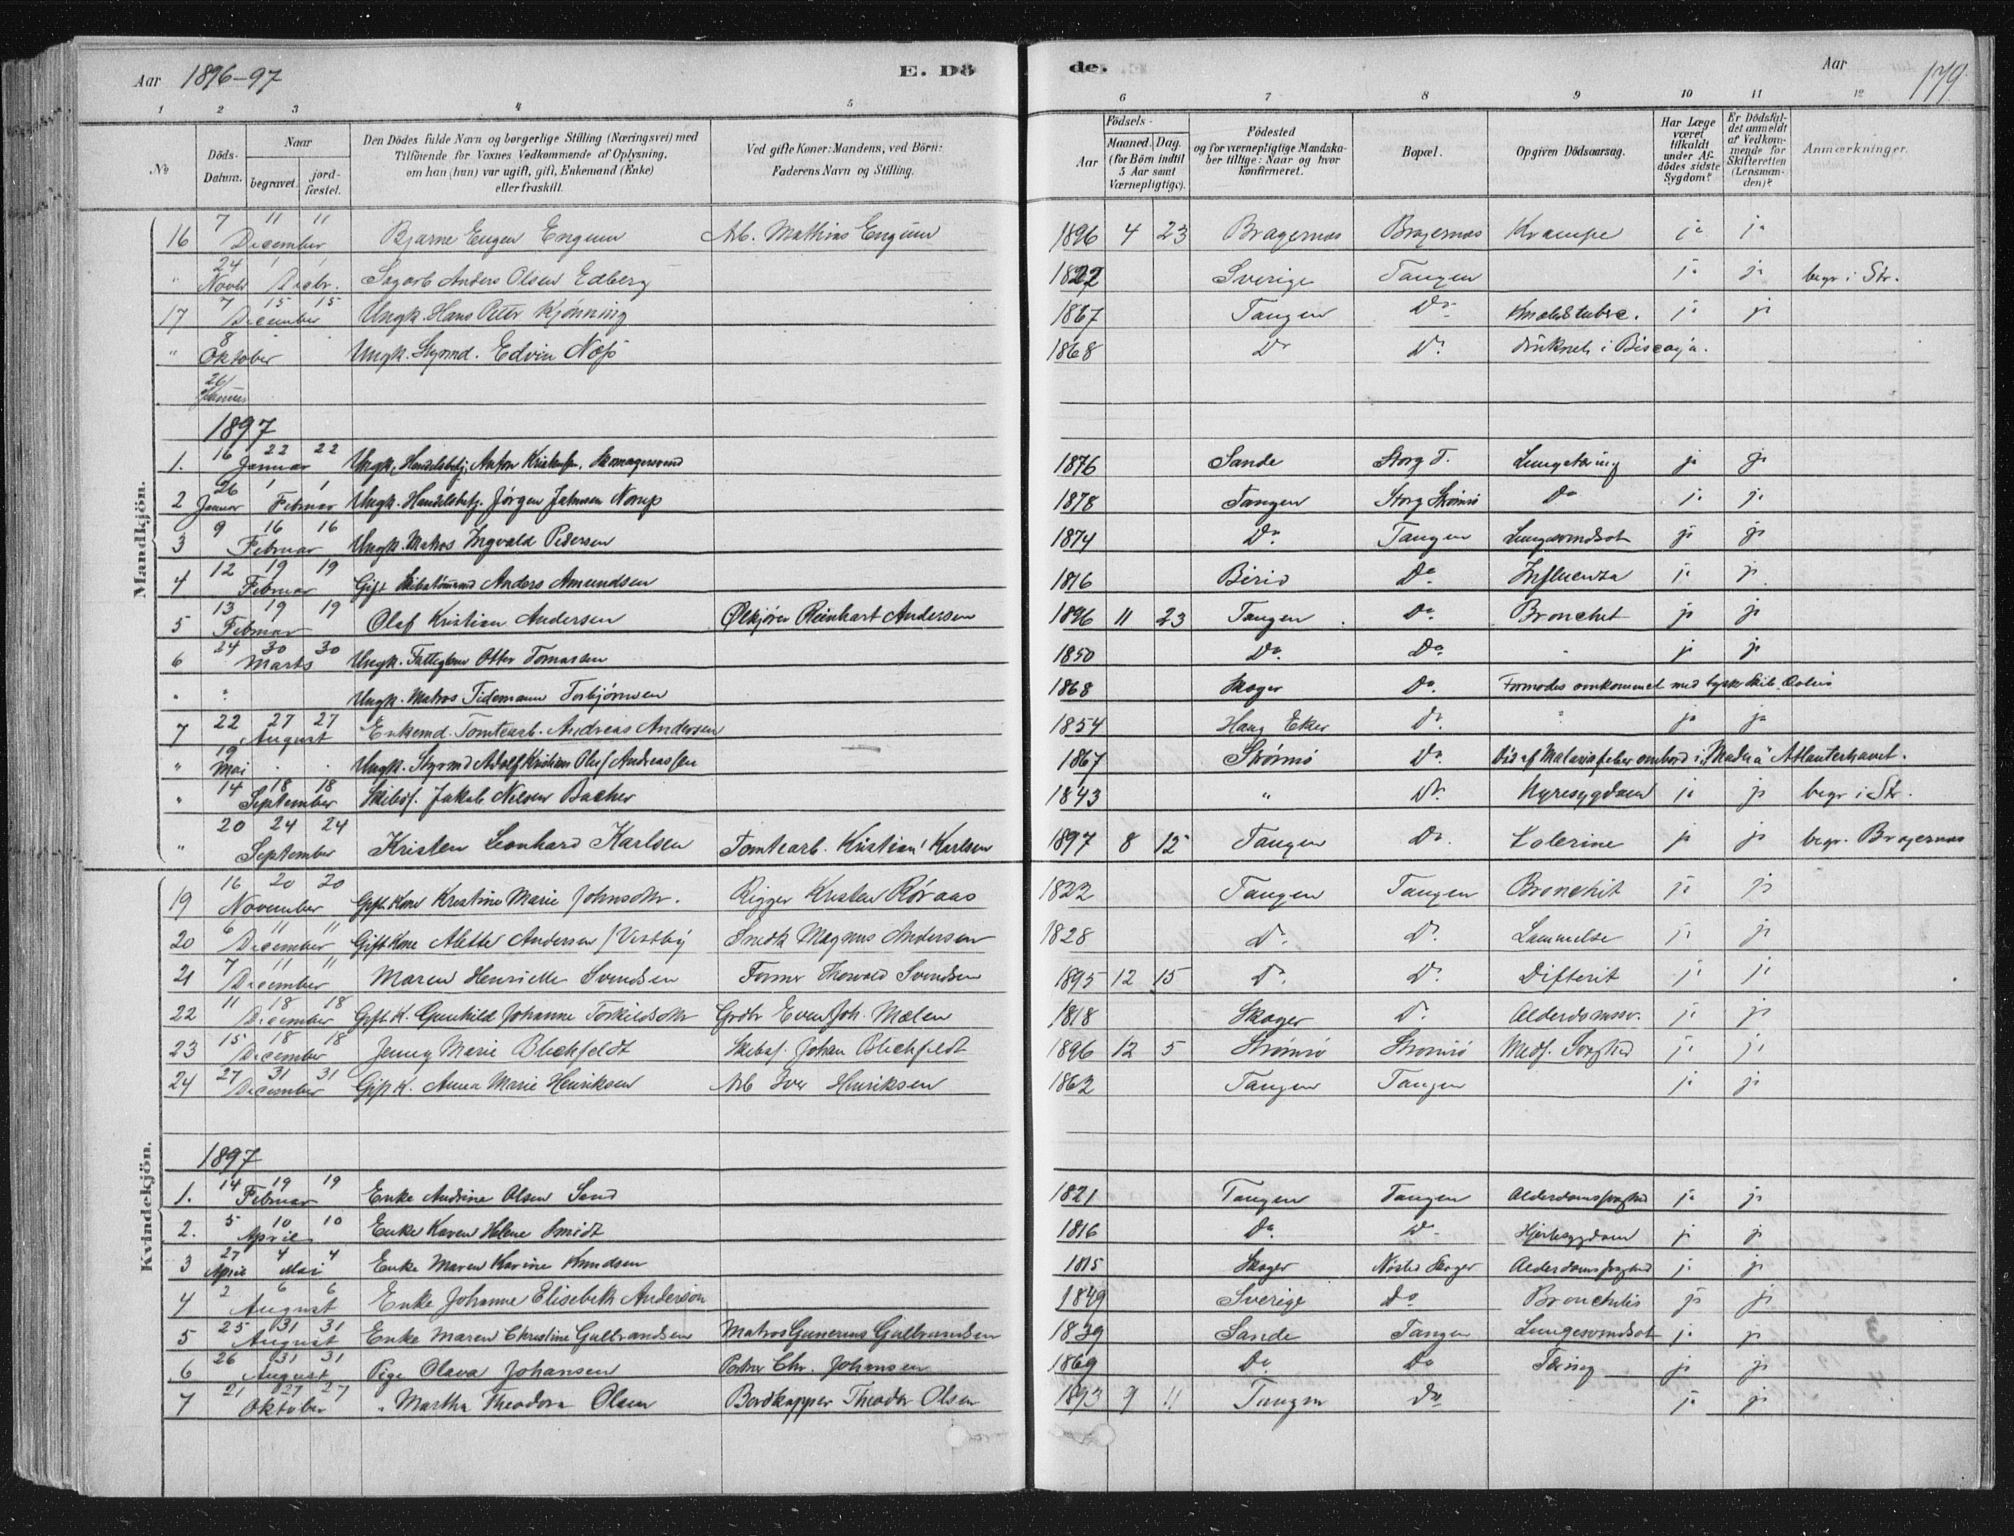 Aar 1896-97 E. Dö de. Aar 179.
1 2 3 4 5 6 7 8 9 10 11 12
No Döds-Datum. Naar begravet. jord-fæstet. Den Dödes fulde Navn og borgerlige Stilling (Næringsvei) med Tilföiende for Voxnes Vedkommende af Oplysning, om han (hun) var ugift, gift, Enkemand (Enke) eller fraskilt. Ved gifte Koner: Mandens, ved Börn: Faderens Navn og Stilling. Födsels- Aar Maaned. Dag. (for Börn indtil 5 Aar samt Værnepligtige). Födested og for værnepligtige Mandskaber tillige: Naar og hvor konfirmeret. Bopæl. Opgiven Dödsaarsag. Har Læge været tilkaldt under Afdödes sidste Sygdom? Er Dödsfaldet anmeldt af Vedkommende for Skifteretten (Lensmanden)? Anmærkninger.
Mandkjön.
16 7 11 11 December Bjarne Eugen Engum Arb. Mathias Engum 1896 4 23 Bragernæs Bragernæs Krampe ja ja
" 24 Novbr 1 1 Decbr. Sagarb Anders Olsen Edberg 1822 Sverige Tangen ja ja begr. i Str.
17 7 15 15 December Ungk. Hans Peter Kjønning 1867 Tangen Do ja ja
" 8 Oktober Ungk. Styrmd. Edvin Næss 1868 Do Do druknet i Biscaya.
26/
1897
1. 16 22 22 Januar Ungk. Handelsbetj. Anton Kristensen, 1876 Sande Storg T. Lungetæring ja ja
2 26 Januar 1 1 Februar Ungk. Handelsbetj. Jørgen Johnsen Norup 1878 Tangen Storg Strømsø Do ja ja
3 9 16 16 Februar Ungk. Matros Ingvald Pedersen 1874 Do Tangen Lungesvindsot ja ja
4 12 19 19 Februar Gift Skibstømmd Anders Amundsen 1816 Birid Do Influenza ja ja
5 13 19 19 Februar Olaf Kristian Andersen Ølkjører Reinhart Andersen 1896 11 23 Tangen Do Bronchit ja ja
6 24 30 30 Marts Ungk. Fattiglem Otter Tomassen 1850 Do Do " ja ja
" " Ungk. Matros Tidemann Torbjørnsen 1868 Skoger Do Formodes omkommet med tysk Skib.
7 22 27 27 August Enkemd. Tomtearb. Andreas Andersen 1854 Haug Eker Do " ja ja
" 19 Mai Ungk. Styrmd Adolf Kristian Oluf Andreassen 1867 Strømsø Do Død af Malariafeber ombord i "Madeia" Atlanterhavet.
" 14 18 18 September Skibsf. Jakob Nelson Bacher 1843 " Do Nyresygdom ja ja begr i Str.
" 20 24 24 September Kristen Leonhard Karlsen Tomtearb. Kristian Karlsen 1897 8 12 Tangen Do Kolerine ja ja begr. Bragernæs
Kvindekjön.
19 16 20 20 November Gift Kone Kristine Marie Johnsdtr. Rigger Kristen Røraas 1822 Tangen Tangen Bronchit ja ja
20 6 11 11 December Gift Kone Alette Andersen f Vestby Snedk Magnus Andersen 1828 Do Do Lammelse ja ja
21 7 11 11 December Maren Henriette Svendsen Former Thorvald Svendsen 1895 12 15 Do Do Difterit ja ja
22 11 18 18 December Gift K. Gunhild Johanne Torkildsdtr Grdbr Even Joh. Mælen 1818 Skoger Do Alderdomssv. ja ja
23 15 18 18 December Jenny Marie Blichfeldt Skibsf. Johan Blichfeldt 1896 12 5 Strømsø Strømsø Medf. Svaghed ja ja
24 27 31 31 December Gift K. Anna Marie Henriksen Arb Iver Henriksen 1862 Tangen Tangen ja ja
1897
1. 14 19 19 Februar Enke Andrine Olsen Sand 1821 Tangen Tangen Alderdomssvaghed ja ja
2. 5 10 10 April Enke Karen Helene Smidt 1816 Do Do Hjertesygdom ja ja
3 27 April 4 4 Mai Enke Maren Karine Knudsen 1815 Skoger Nøsted Skoger Alderdomssvaghed ja ja
4 2 6 6 August Enke Johanne Elisabeth Anderson 1849 Sverige Do Bronchitis ja ja
5 25 31 31 August Enke Maren Christine Gulbrandsen Matros Gunerius Gulbrandsen 1839 Sande Tangen Lungesvindsot ja ja
6 26 31 31 August Pige Olava Johansen Chr. Johansen 1869 Do Do Tæring ja ja
7 21 27 27 Oktober " Martha Theodora Olsen Bordkapper Theodor Olsen 1893 9 11 Tangen Do ja ja